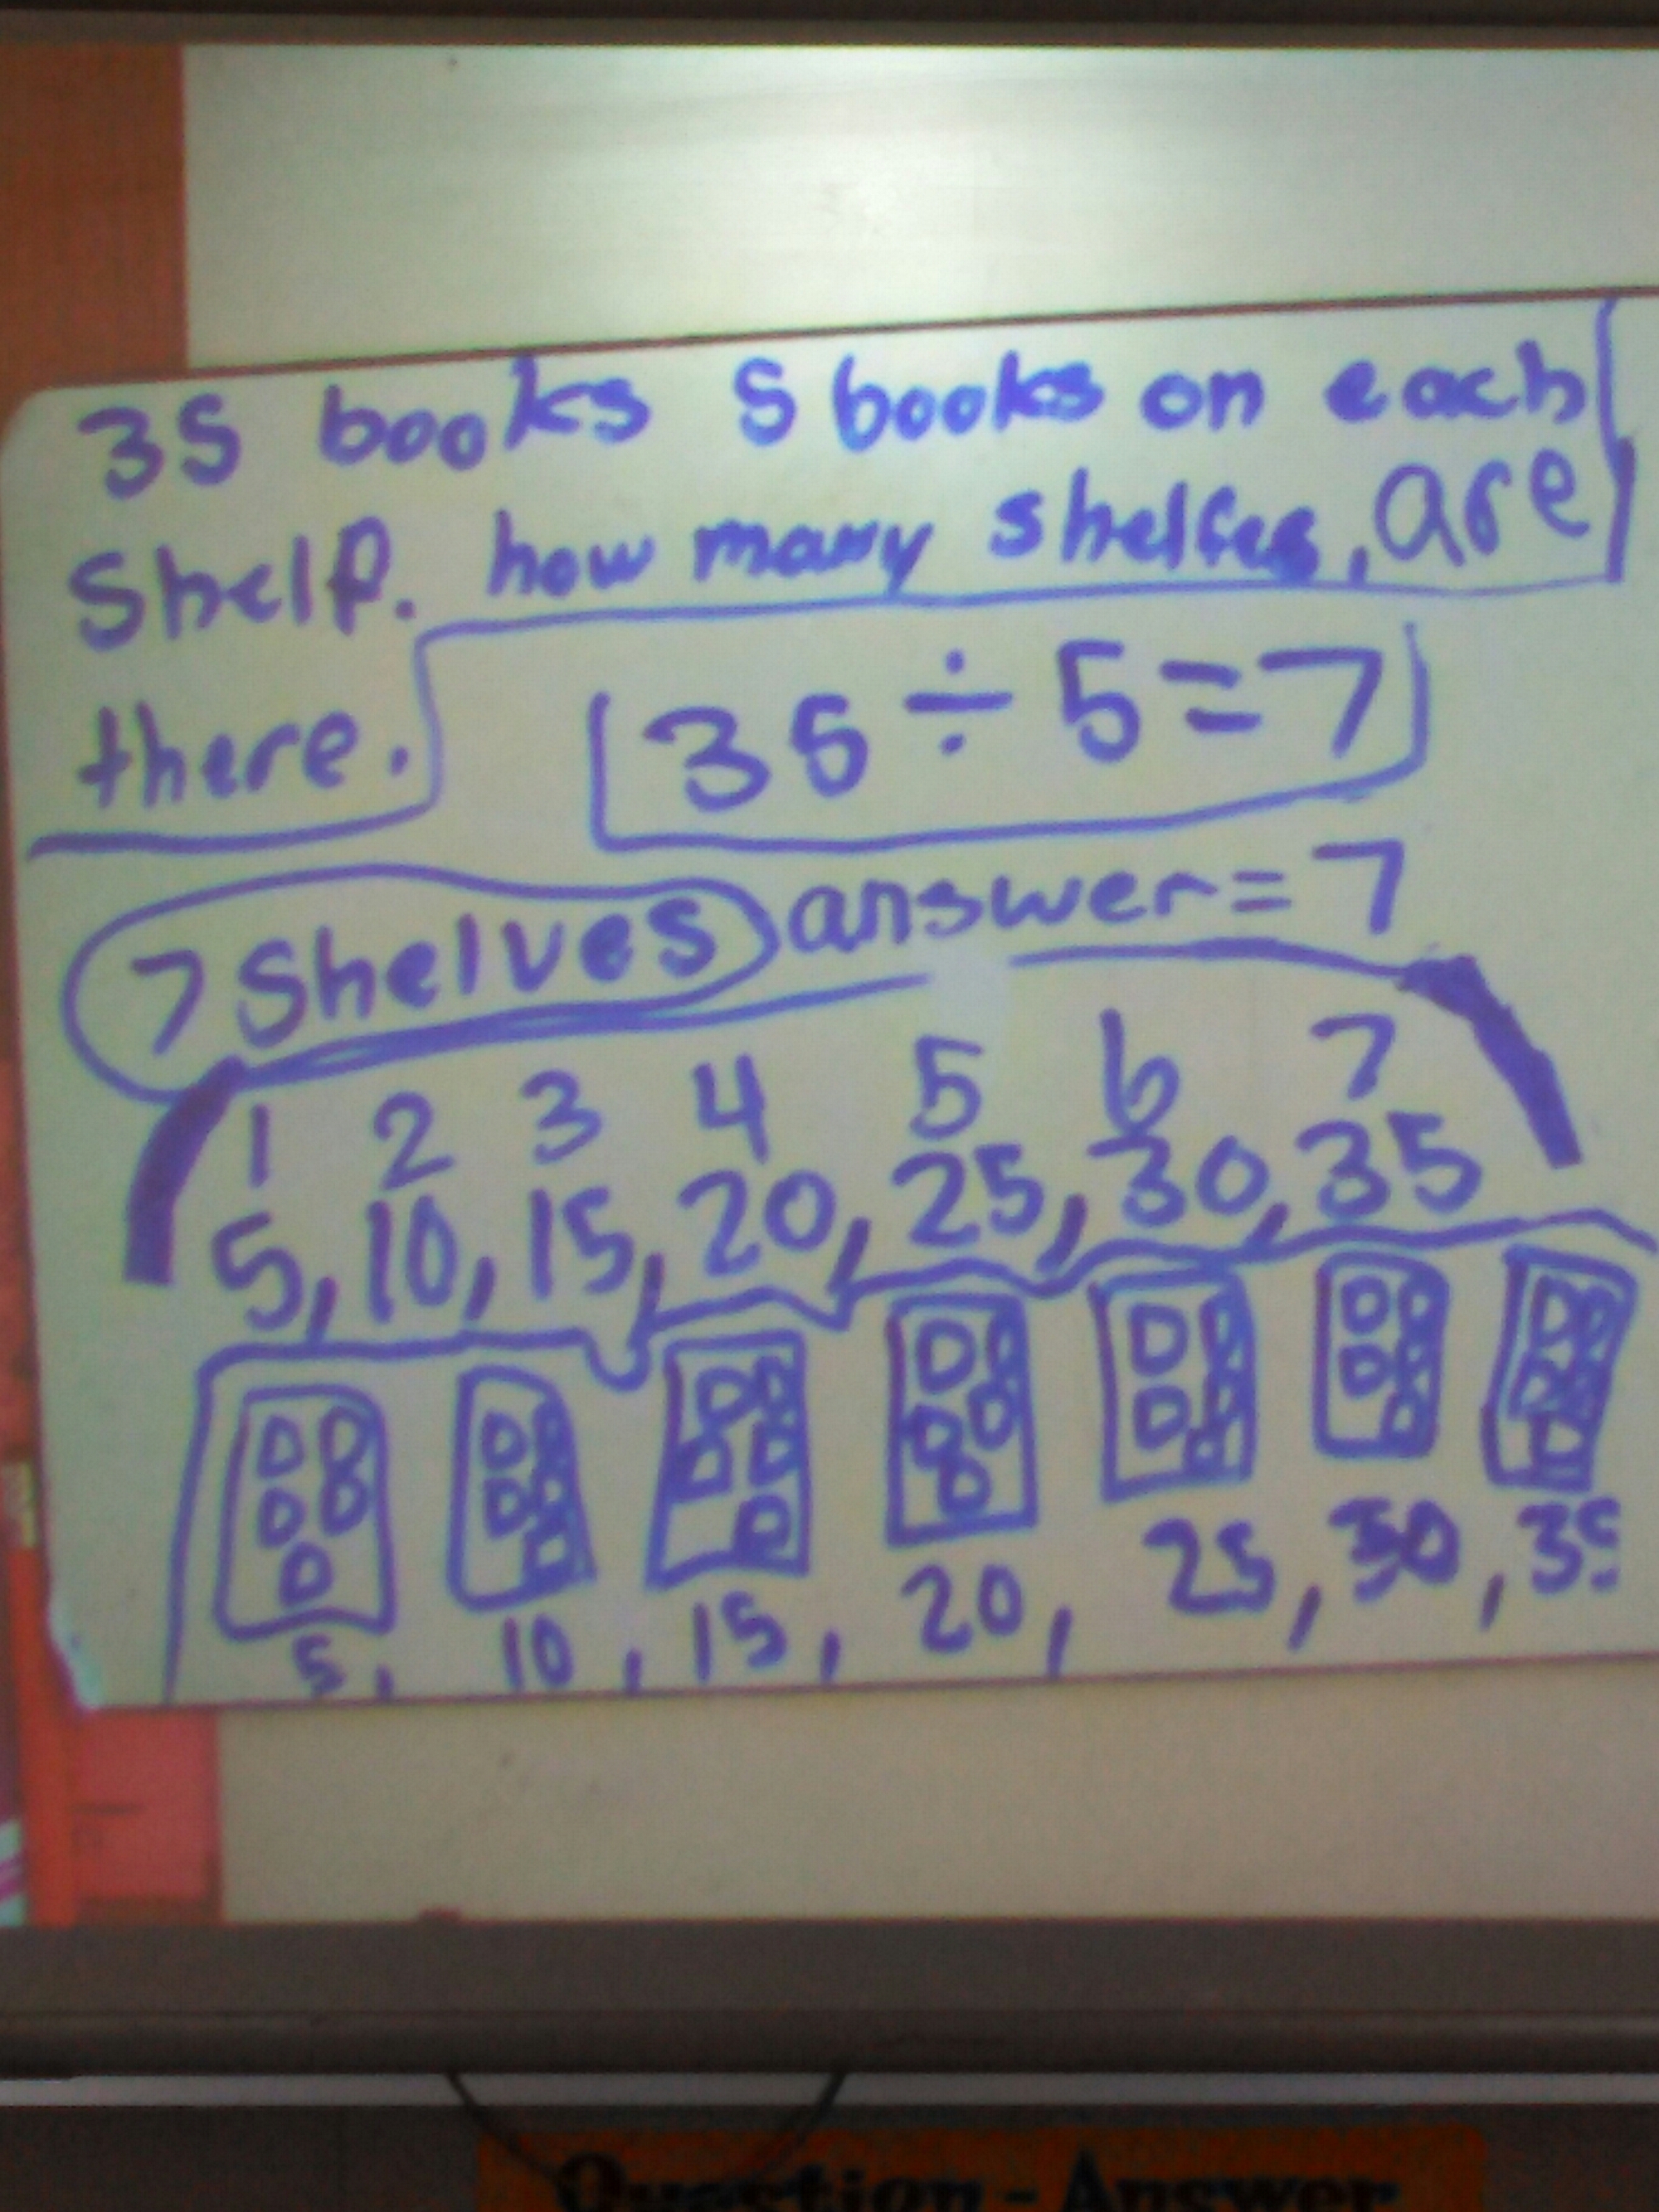 35 books 5 books on each
Shelf. how many shelfes, are
there.
35 ÷ 5 = 7
7 Shelves answer = 7
1 2 3 4 5 6 7
5, 10, 15, 20, 25, 30, 35
5, 10, 15, 20, 25, 30, 35
Question - Answer